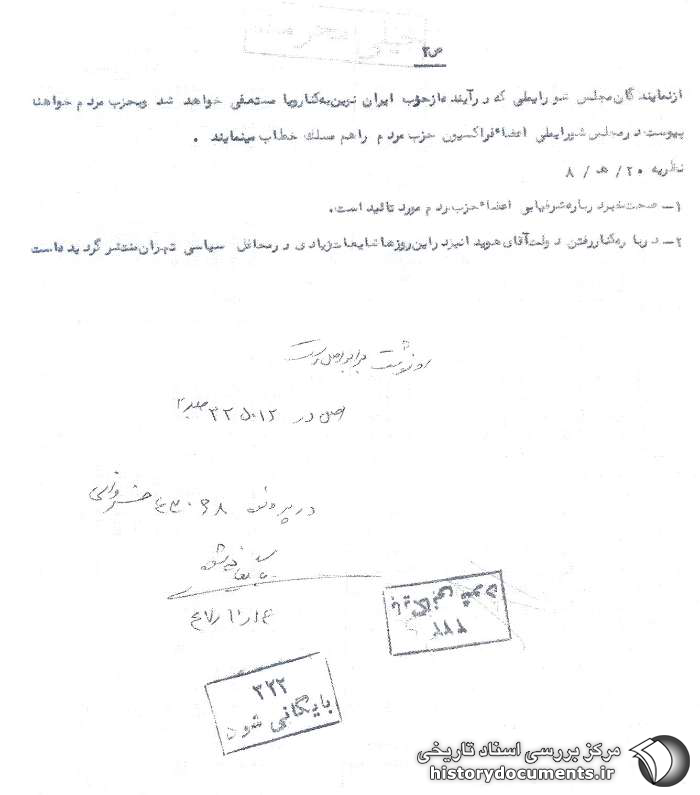 خیلی محرمانه
ص۲
ازنمایندگان مجلس شورایطی که درآینده ازحزب ایران نوین به کنارویا مستعفی خواهد شد وبحزب مردم خواهند
پیوست درمجلس شورایطی اعضاء فراکسیون حزب مردم راهم مسلک خطاب مینمایند .
نظریه ۲۰ / هـ / ۸
۱ـ صحت خبردرباره شرفیابی اعضاء حزب مردم مورد تائید است.
۲ـ درباره کناررفتن دولت آقای هویدا نیزدراین روزها شایعات زیادی درمحافل سیاسی تهران منتشر گردیده است
رونوشت برابر اصل است
اصل در ۳۲۵۰۱۲ جلد ۲
در پرونده خسروانی
بایگانی شود
۳۲۲
بایگانی شود
مرکز بررسی اسناد تاریخی
historydocuments.ir